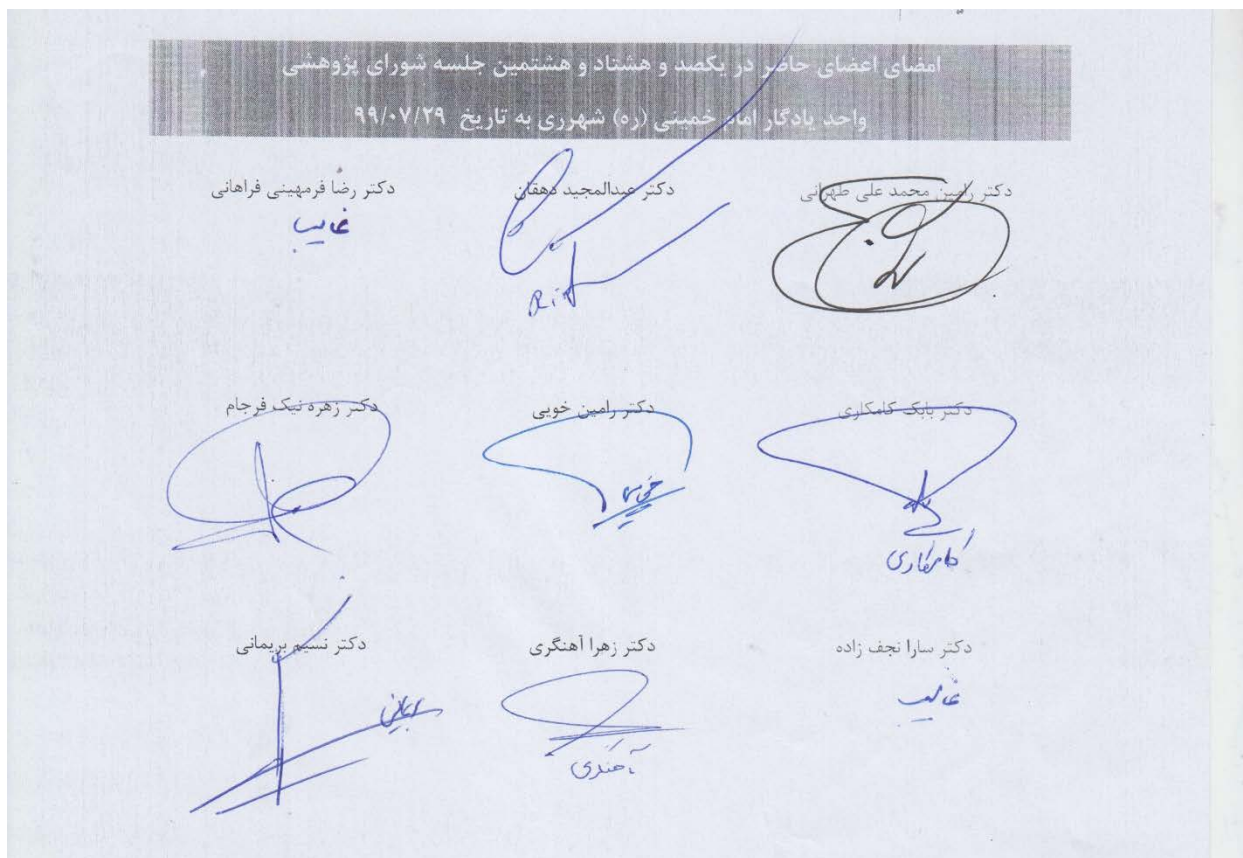 امضای اعضای حاضر در یکصد و هشتاد و هشتمین جلسه شورای پژوهشی
واحد یادگار امام خمینی (ره) شهرری به تاریخ ۹۹/۰۷/۲۹
دکتر رامین محمد علی طهرانی
دکتر عبدالمجید دهقان
دکتر رضا فرمهینی فراهانی
غایب
دکتر بابک کامکاری
دکتر رامین خویی
دکتر زهره نیک فرجام
خویی
کامکاری
دکتر سارا نجف زاده
دکتر زهرا آهنگری
دکتر نسیم بریمانی
غایب
بریمانی
آهنگری